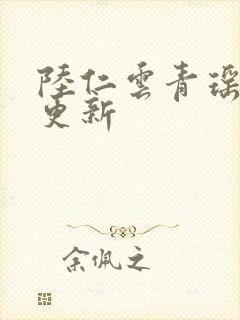 陸仁雲青瑶
更新
余佩之